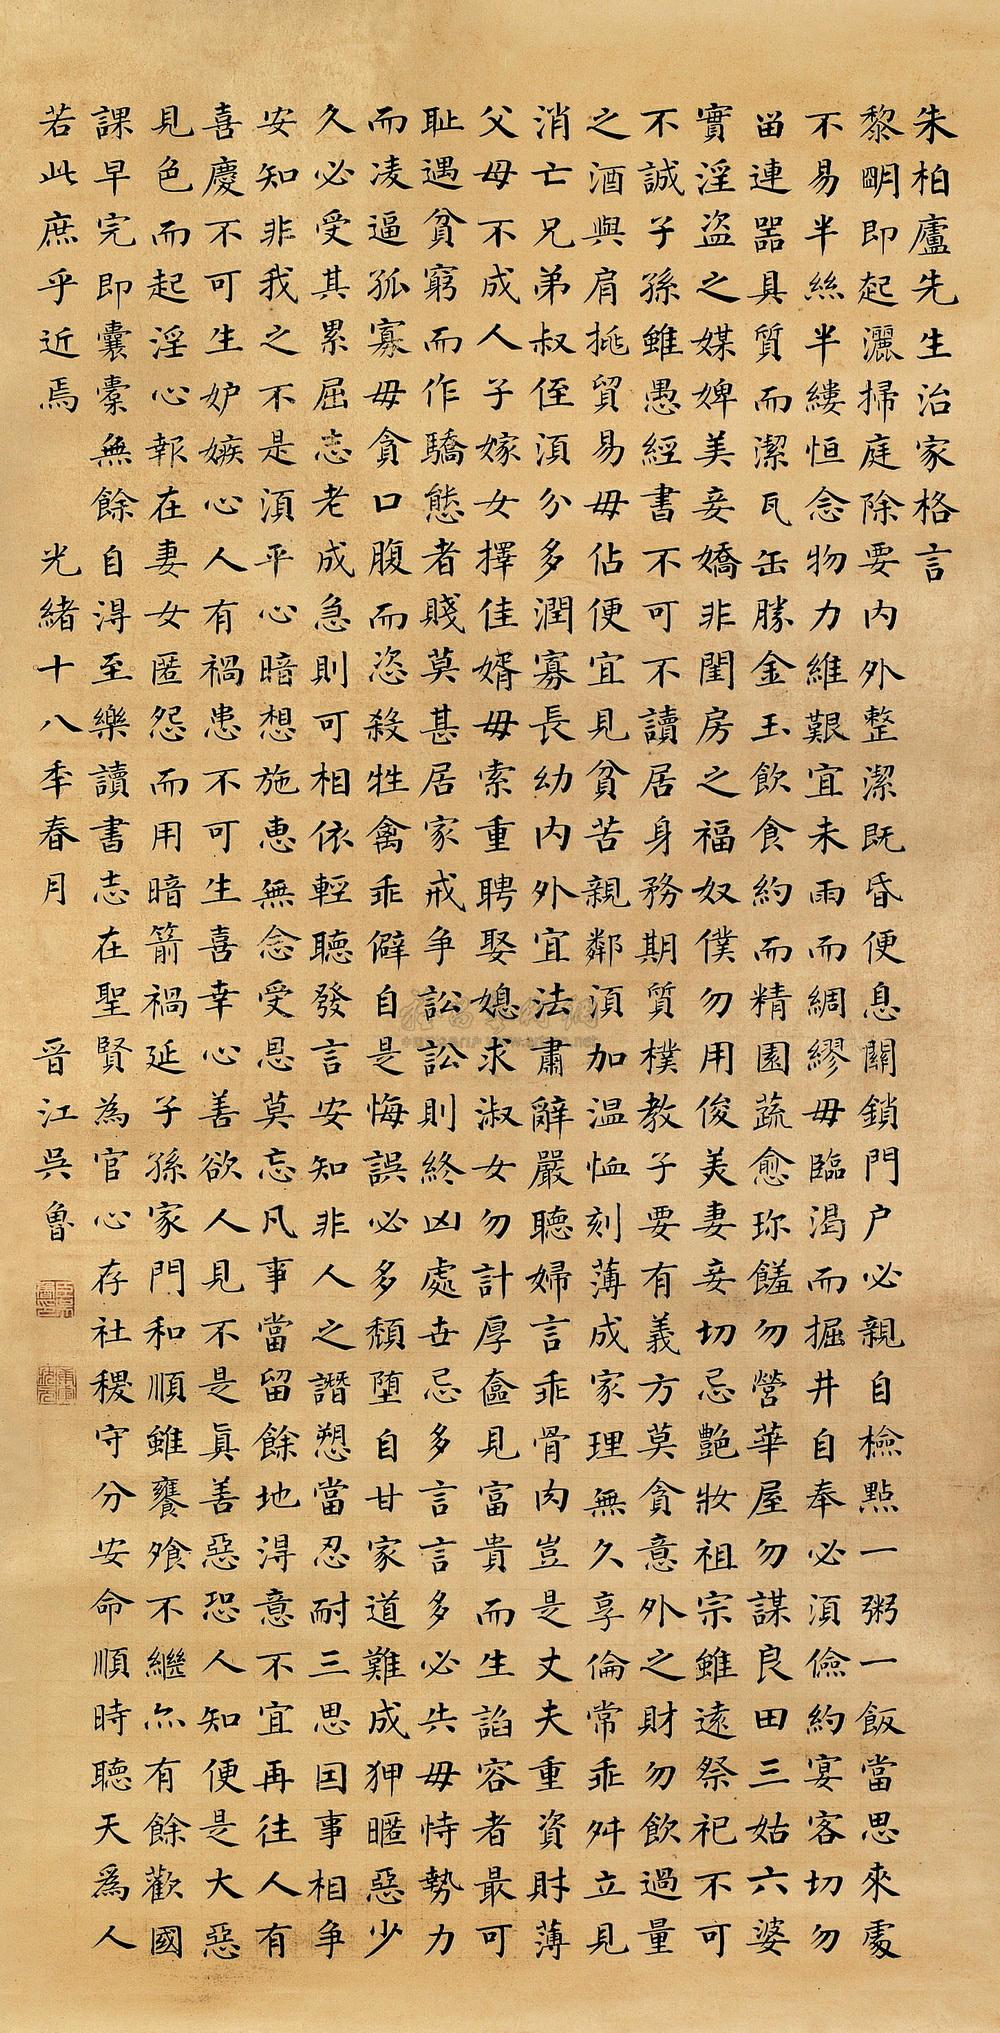 朱柏廬先生治家格言
黎明即起灑掃庭除要内外整潔既昏便息關鎖門户必親自檢點一粥一飯當思來處
不易半絲半縷恒念物力維艱宜未雨而綢繆毋臨渴而掘井自奉必須儉約宴客切勿
留連器具質而潔瓦缶勝金玉飲食約而精園蔬愈珍饈勿營華屋勿謀良田三姑六婆
實淫盜之媒婢美妾嬌非閨房之福奴僕勿用俊美妻妾切忌艷妝祖宗雖遠祭祀不可
不誠子孫雖愚經書不可不讀居身務期質樸教子要有義方莫貪意外之財勿飲過量
之酒與肩挑貿易毋佔便宜見貧苦親鄰須加温恤刻薄成家理無久享倫常乖舛立見
消亡兄弟叔侄須分多潤寡長幼内外宜法肅辭嚴聽婦言乖骨肉豈是丈夫重資財薄
父母不成人子嫁女擇佳婿毋索重聘娶媳求淑女勿計厚奩見富貴而生諂容者最可
耻遇貧窮而作驕態者賤莫甚居家戒爭訟訟則終凶處世忌多言言多必失毋恃勢力
而凌逼孤寡毋貪口腹而恣殺牲禽乖僻自是悔誤必多頹堕自甘家道難成狎暱惡少
久必受其累屈志老成急則可相依輕聽發言安知非人之譖愬當忍耐三思因事相爭
安知非我之不是須平心暗想施恵無念受恩莫忘凡事當留餘地得意不宜再往人有
喜慶不可生妒嫉心人有禍患不可生喜幸心善欲人見不是真善惡恐人知便是大惡
見色而起淫心報在妻女匿怨而用暗箭禍延子孫家門和順雖饔飧不繼亦有餘歡國
課早完即囊橐無餘自得至樂讀書志在聖賢為官心存社稷守分安命順時聽天為人
若此庶乎近焉 光緒十八年春月 晉江吳魯